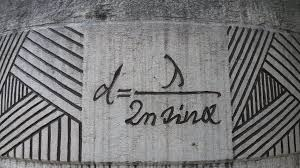 d = λ
2n sin α